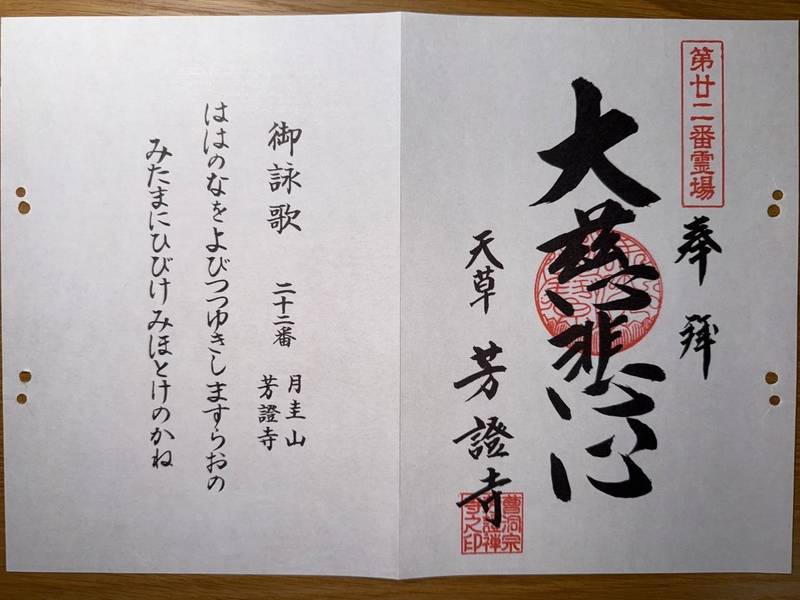 第廿二番霊場
奉拝
大慈悲心
天草 芳證寺
曹洞宗
御詠歌 二十二番 月圭山
芳證寺
ははのなをよびつつゆきしますらおの
みたまにひびけみほとけのかね